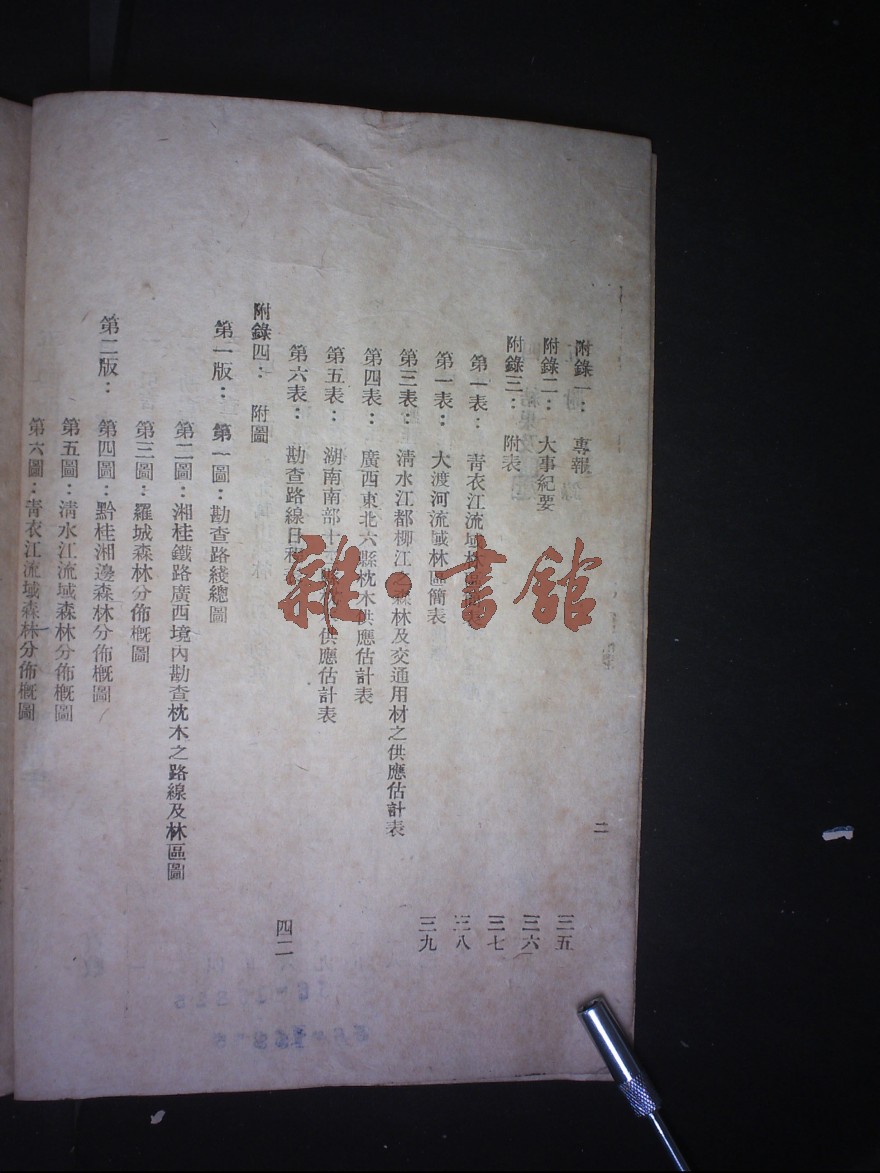 二
附錄一： 專報 三五
附錄二： 大事紀要 三六
附錄三： 附表 三七
第一表： 青衣江流域林 三八
第一表： 大渡河流域林區簡表 三九
第三表： 清水江都柳江之森林及交通用材之供應估計表
第四表： 廣西東北六縣枕木供應估計表
第五表： 湖南南部十 供應估計表
第六表： 勘查路線日程 四二
附錄四： 附圖
第一版： 第一圖：勘查路綫總圖
第二圖：湘桂鐵路廣西境內勘查枕木之路線及林區圖
第三圖：羅城森林分佈概圖
第二版： 第四圖：黔桂湘邊森林分佈概圖
第五圖：清水江流域森林分佈概圖
第六圖：青衣江流域森林分佈概圖
雜·書館